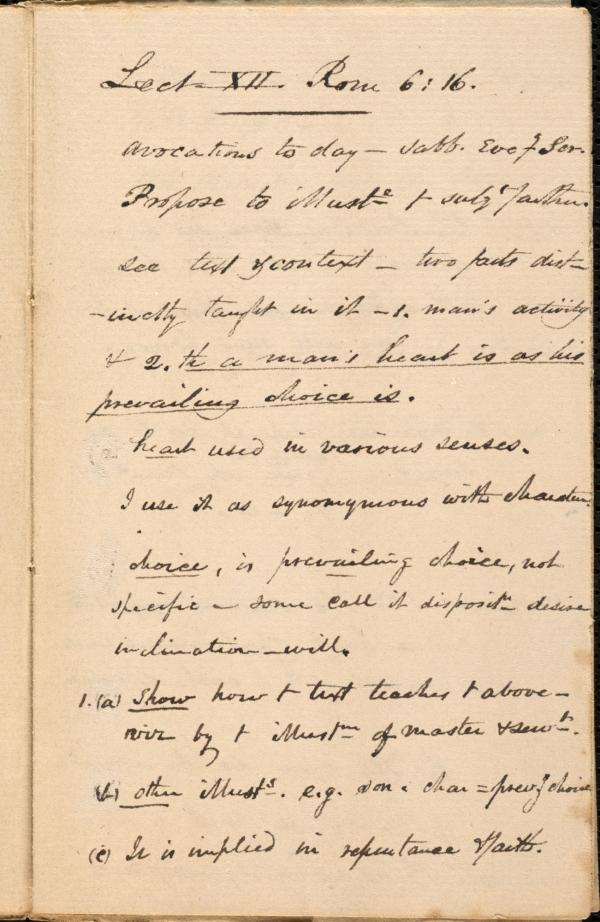 Lect. XII. Rom 6:16.
avocations to day — sabb. Eve
Propose to illust^e t subj^t farther.
see text & context — two facts dist-
-inctly taught in it — 1. man's activity
& 2. th a man's heart is as his
prevailing choice is.
heart used in various senses.
I use it as synonymous with character.
choice, is prevailing choice, not
specific — some call it disposit^n desire
inclination — will.
1. (a) Show how t text teaches t above —
by t illust^n of master & serv^t.
(b) other illust^s. e.g. char = choice
(c) It is implied in repentance & faith.